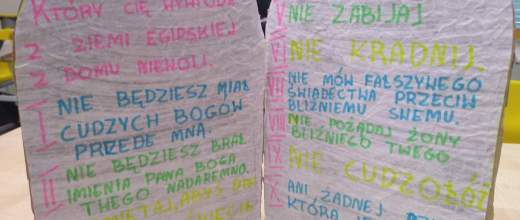 KTÓRY CIĘ WYWIÓDŁ
Z ZIEMI EGIPSKIEJ
Z DOMU NIEWOLI.
I NIE BĘDZIESZ MIAŁ
CUDZYCH BOGÓW
PRZEDE MNĄ.
II NIE BĘDZIESZ BRAŁ
IMIENIA PANA BOGA
TWEGO NADAREMNO.
V NIE ZABIJAJ
VI NIE KRADNIJ.
VII NIE MÓW FAŁSZYWEGO
ŚWIADECTWA PRZECIW
BLIŹNIEMU SWEMU.
VIII NIE POŻĄDAJ ŻONY
BLIŹNIEGO TWEGO
IX NIE CUDZOŁÓŻ
X ANI ŻADNEJ
KTÓRA